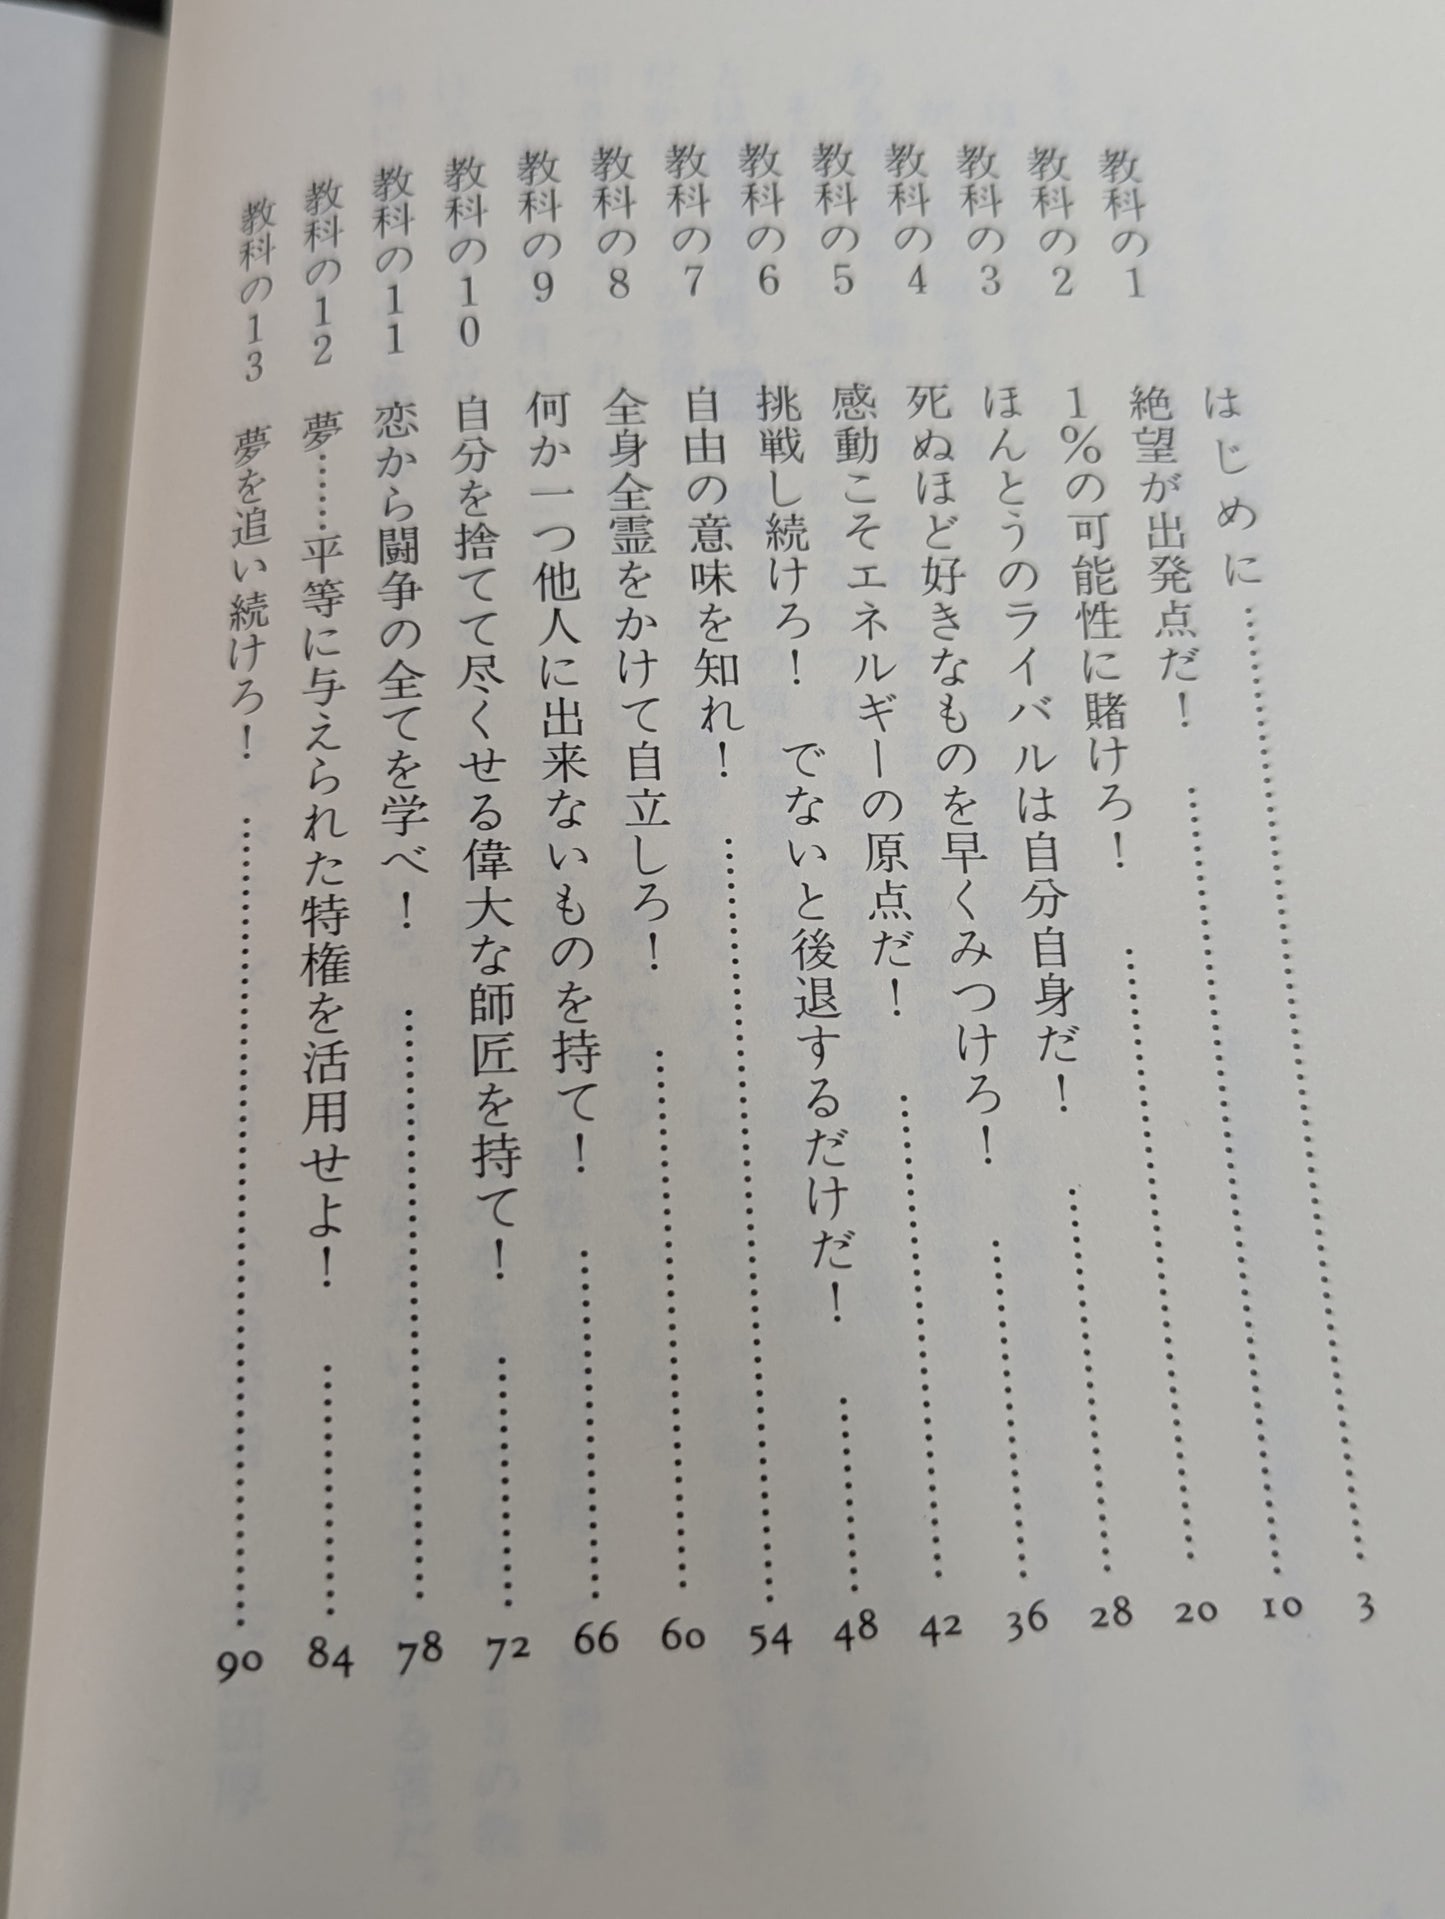 はじめに……………………………3
教科の1 絶望が出発点だ！……………………………10
教科の2 1％の可能性に賭けろ！……………………………20
教科の3 ほんとうのライバルは自分自身だ！……………………………28
教科の4 死ぬほど好きなものを早くみつけろ！……………………………36
教科の5 感動こそエネルギーの原点だ！……………………………42
教科の6 挑戦し続けろ！ でないと後退するだけだ！……………………………48
教科の7 自由の意味を知れ！……………………………54
教科の8 全身全霊をかけて自立しろ！……………………………60
教科の9 何か一つ他人に出来ないものを持て！……………………………66
教科の10 自分を捨てて尽くせる偉大な師匠を持て！……………………………72
教科の11 恋から闘争の全てを学べ！……………………………78
教科の12 夢……平等に与えられた特権を活用せよ！……………………………84
教科の13 夢を追い続けろ！……………………………90